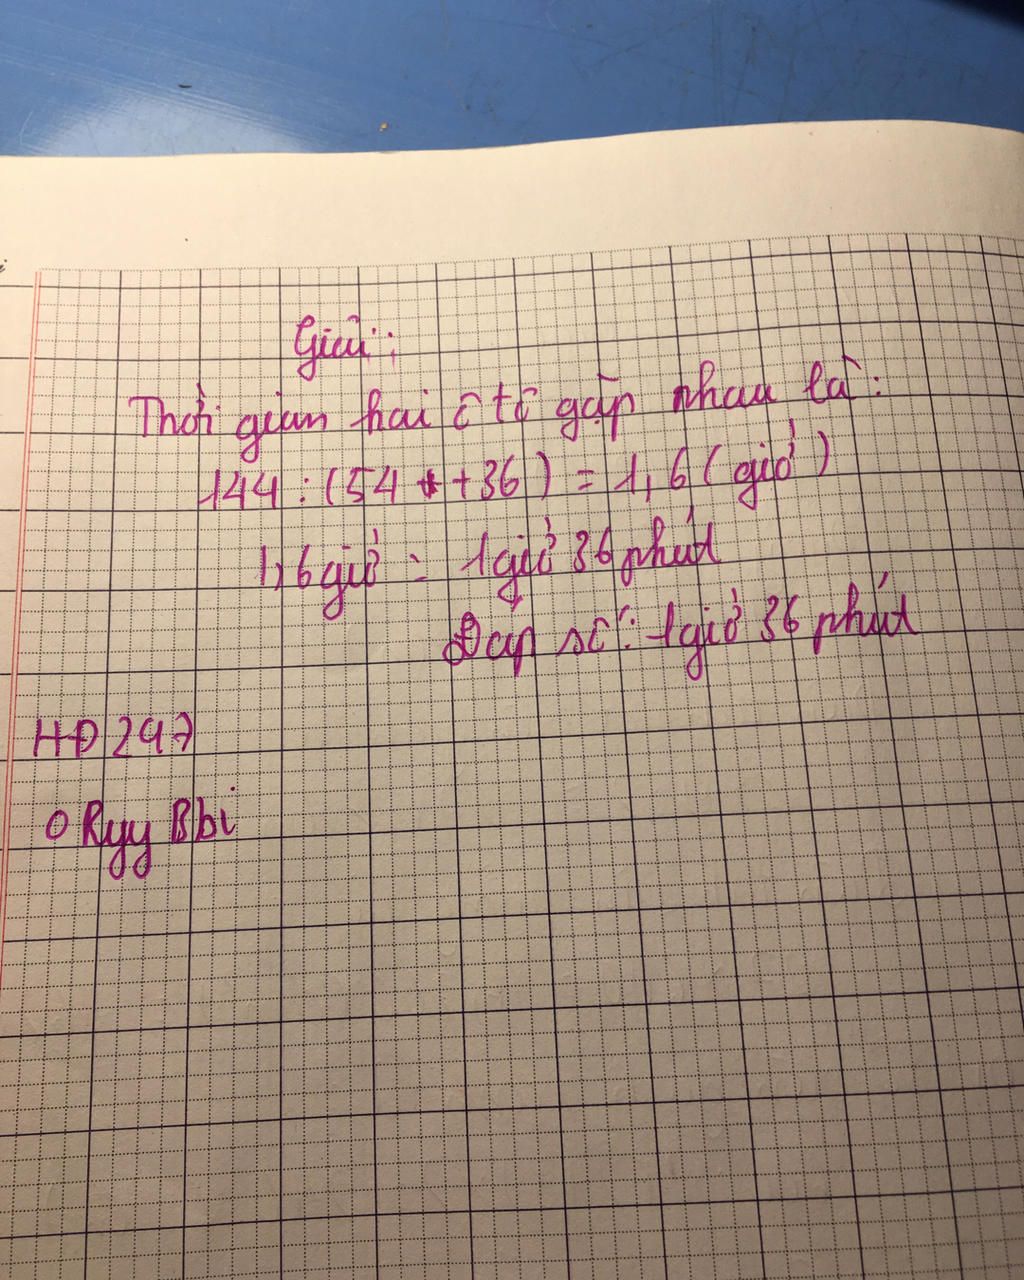 Giải:
Thời gian hai ô tô gặp nhau là:
144 : (54 + 36) = 1,6 (giờ)
1,6 giờ = 1 giờ 36 phút
Đáp số: 1 giờ 36 phút
HĐ 247
O Ryy Bbi